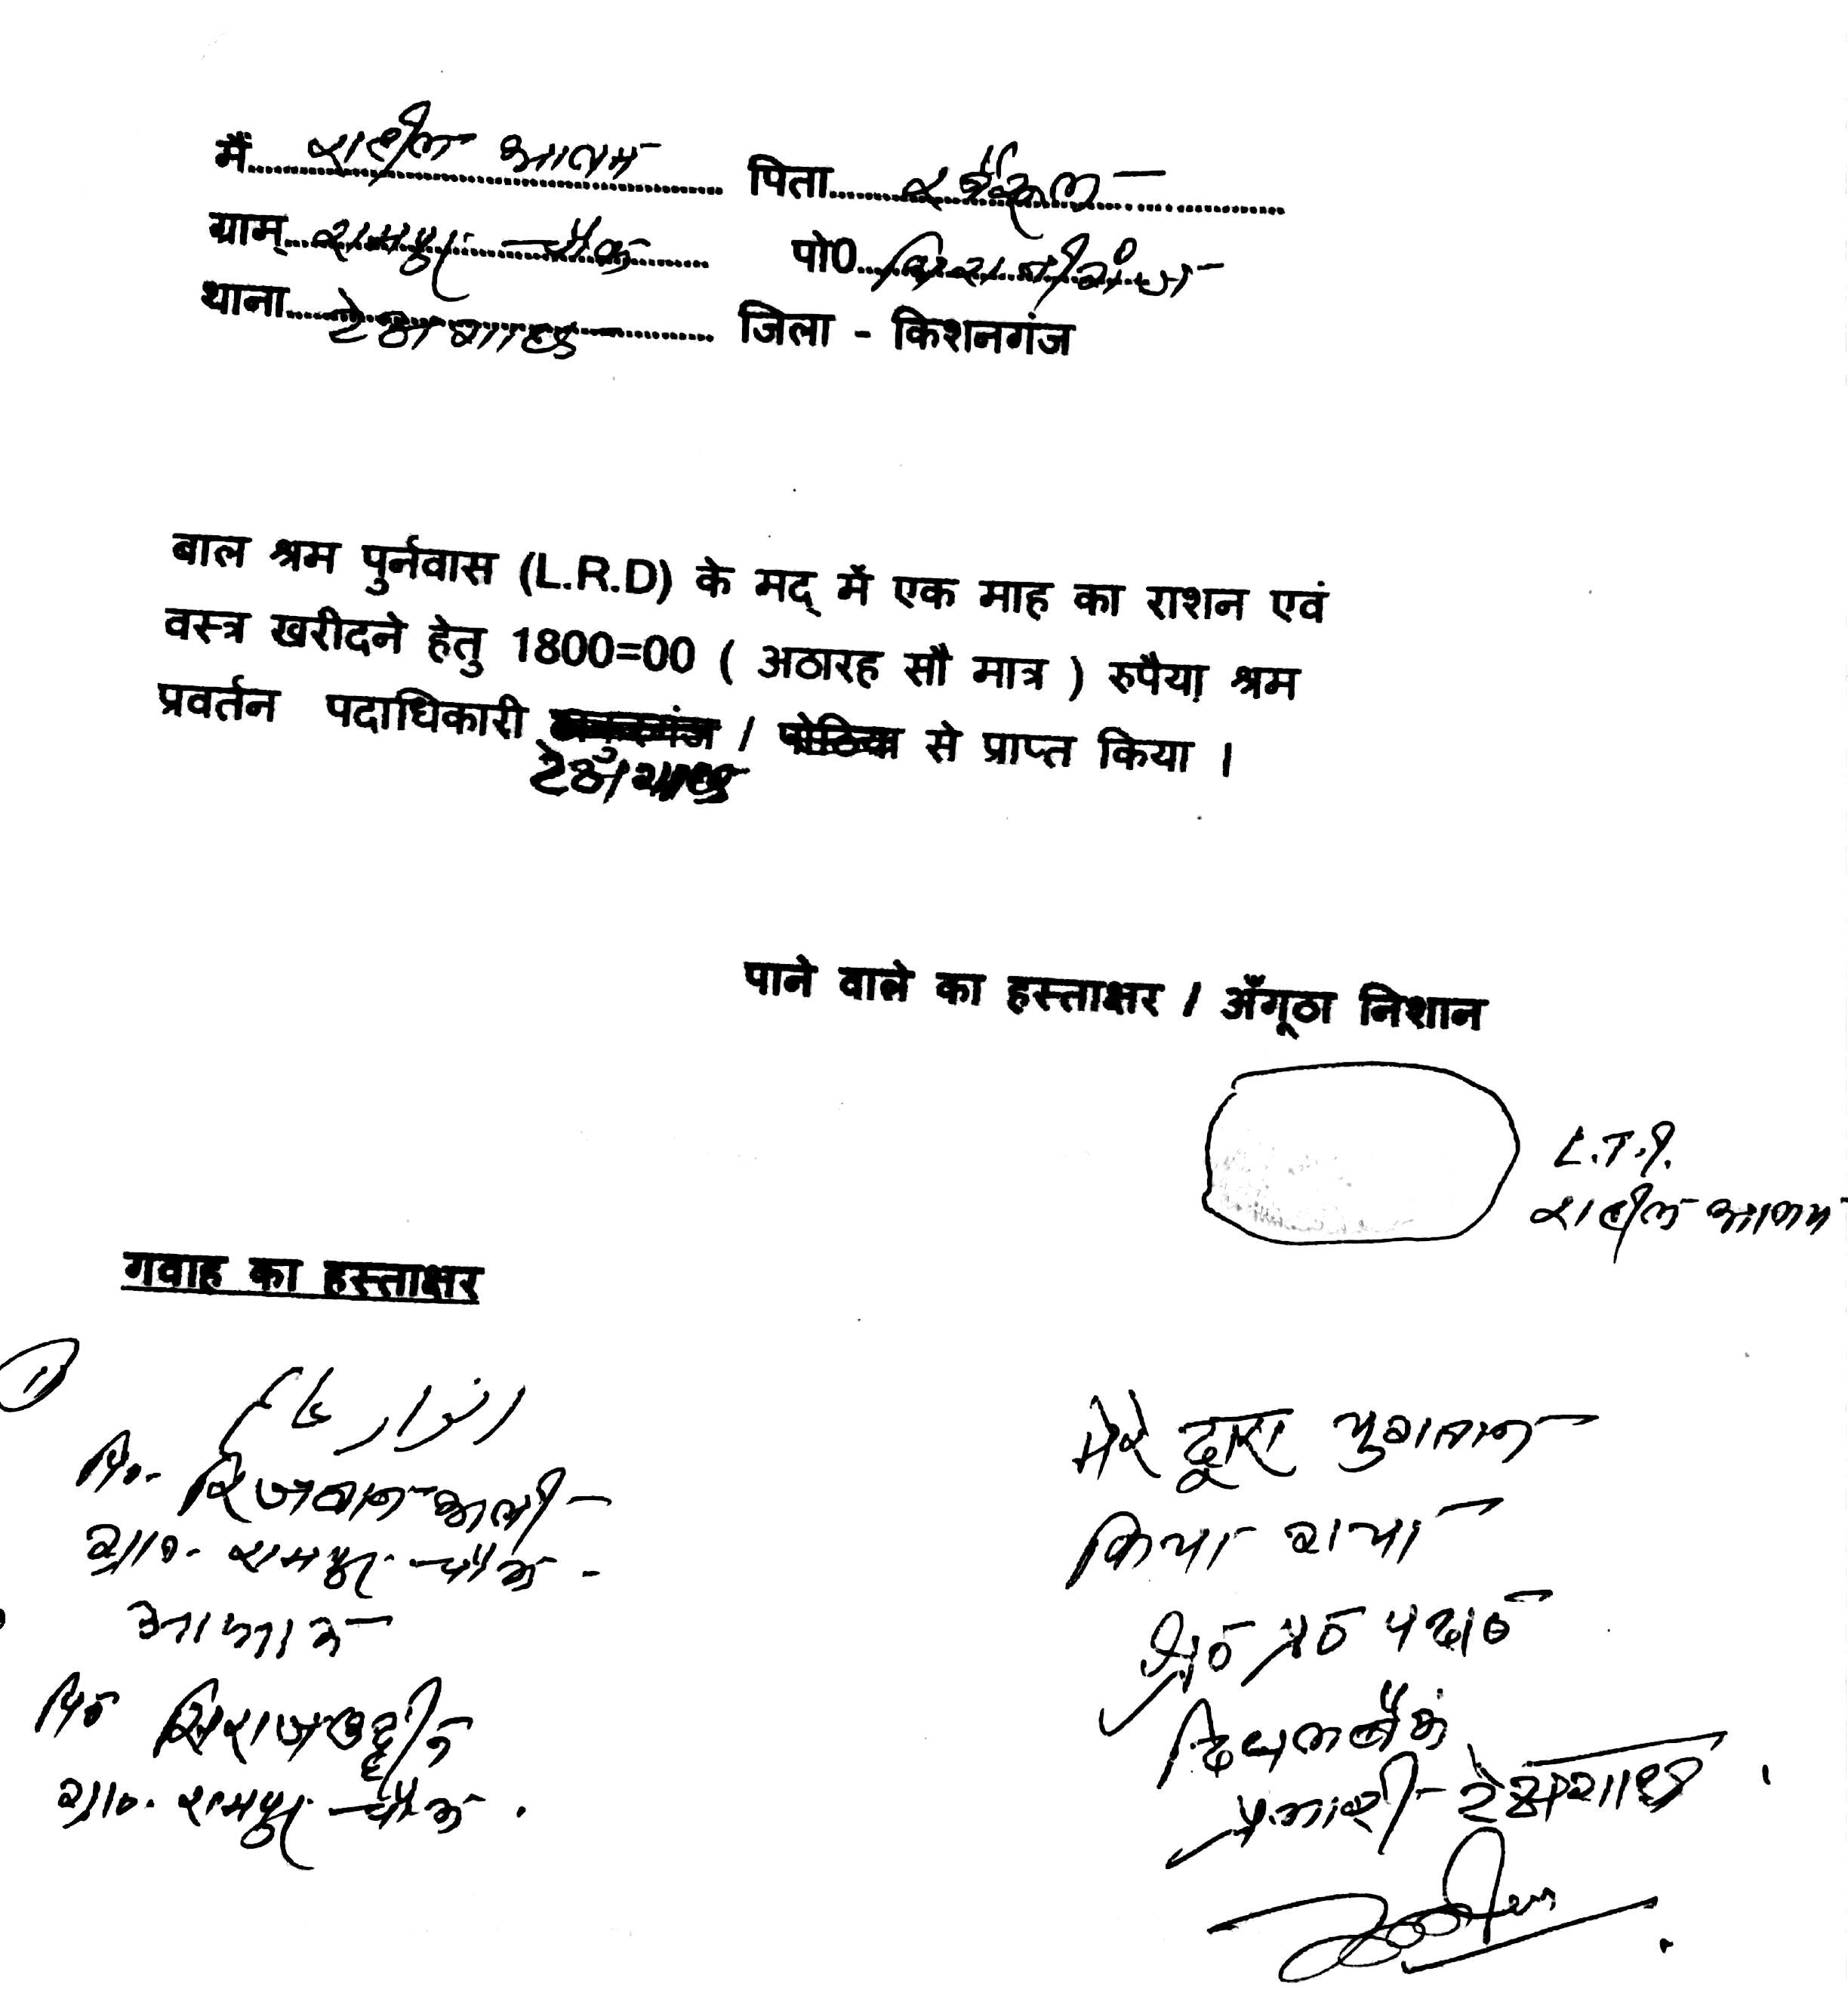 मैं राहील आलम पिता
ग्राम् रामपुर चौक पो0
थाना टेढ़ागाछ जिला - किशनगंज
बाल श्रम पुर्नवास (L.R.D) के मद् में एक माह का राशन एवं
वस्त्र खरीदने हेतु 1800=00 ( अठारह सौ मात्र ) रुपैया श्रम
प्रवर्तन पदाधिकारी / पोठिया से प्राप्त किया ।
टेढ़ागाछ
पाने वाले का हस्ताक्षर / अँगूठा निशान
L.T.I.
राहील आलम
गवाह का हस्ताक्षर
1
पि०- रिजवान अली
ग्रा०- रामपुर चौक
पि० सिराजउद्दीन
ग्रा०- रामपुर चौक
मेरे द्वारा भुगतान
किया गया
श्र० प्र० पदा०
दिघलबैंक
प्रभारी टेढ़ागाछ